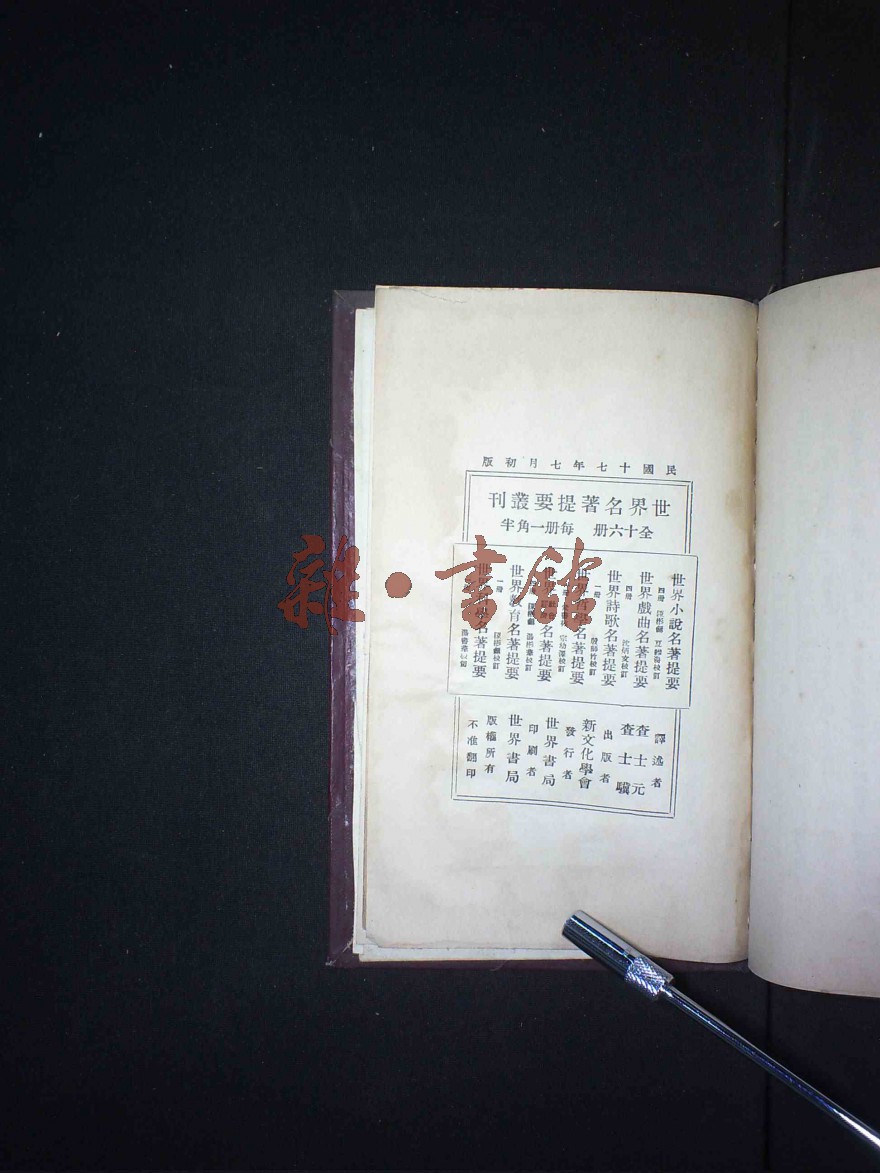 民國十七年七月初版
世界名著提要叢刊
全十六册 每册一角半
世界小說名著提要
四册
世界戲曲名著提要
四册 沈炳文校訂
世界詩歌名著提要
一册
名著提要
宗幼澤校訂
名著提要
世界教育名著提要
一册
名著提要
譯述者
查士元
查士驥
出版者
新文化學會
發行者
世界書局
印刷者
世界書局
版權所有
不准翻印
雜·書館